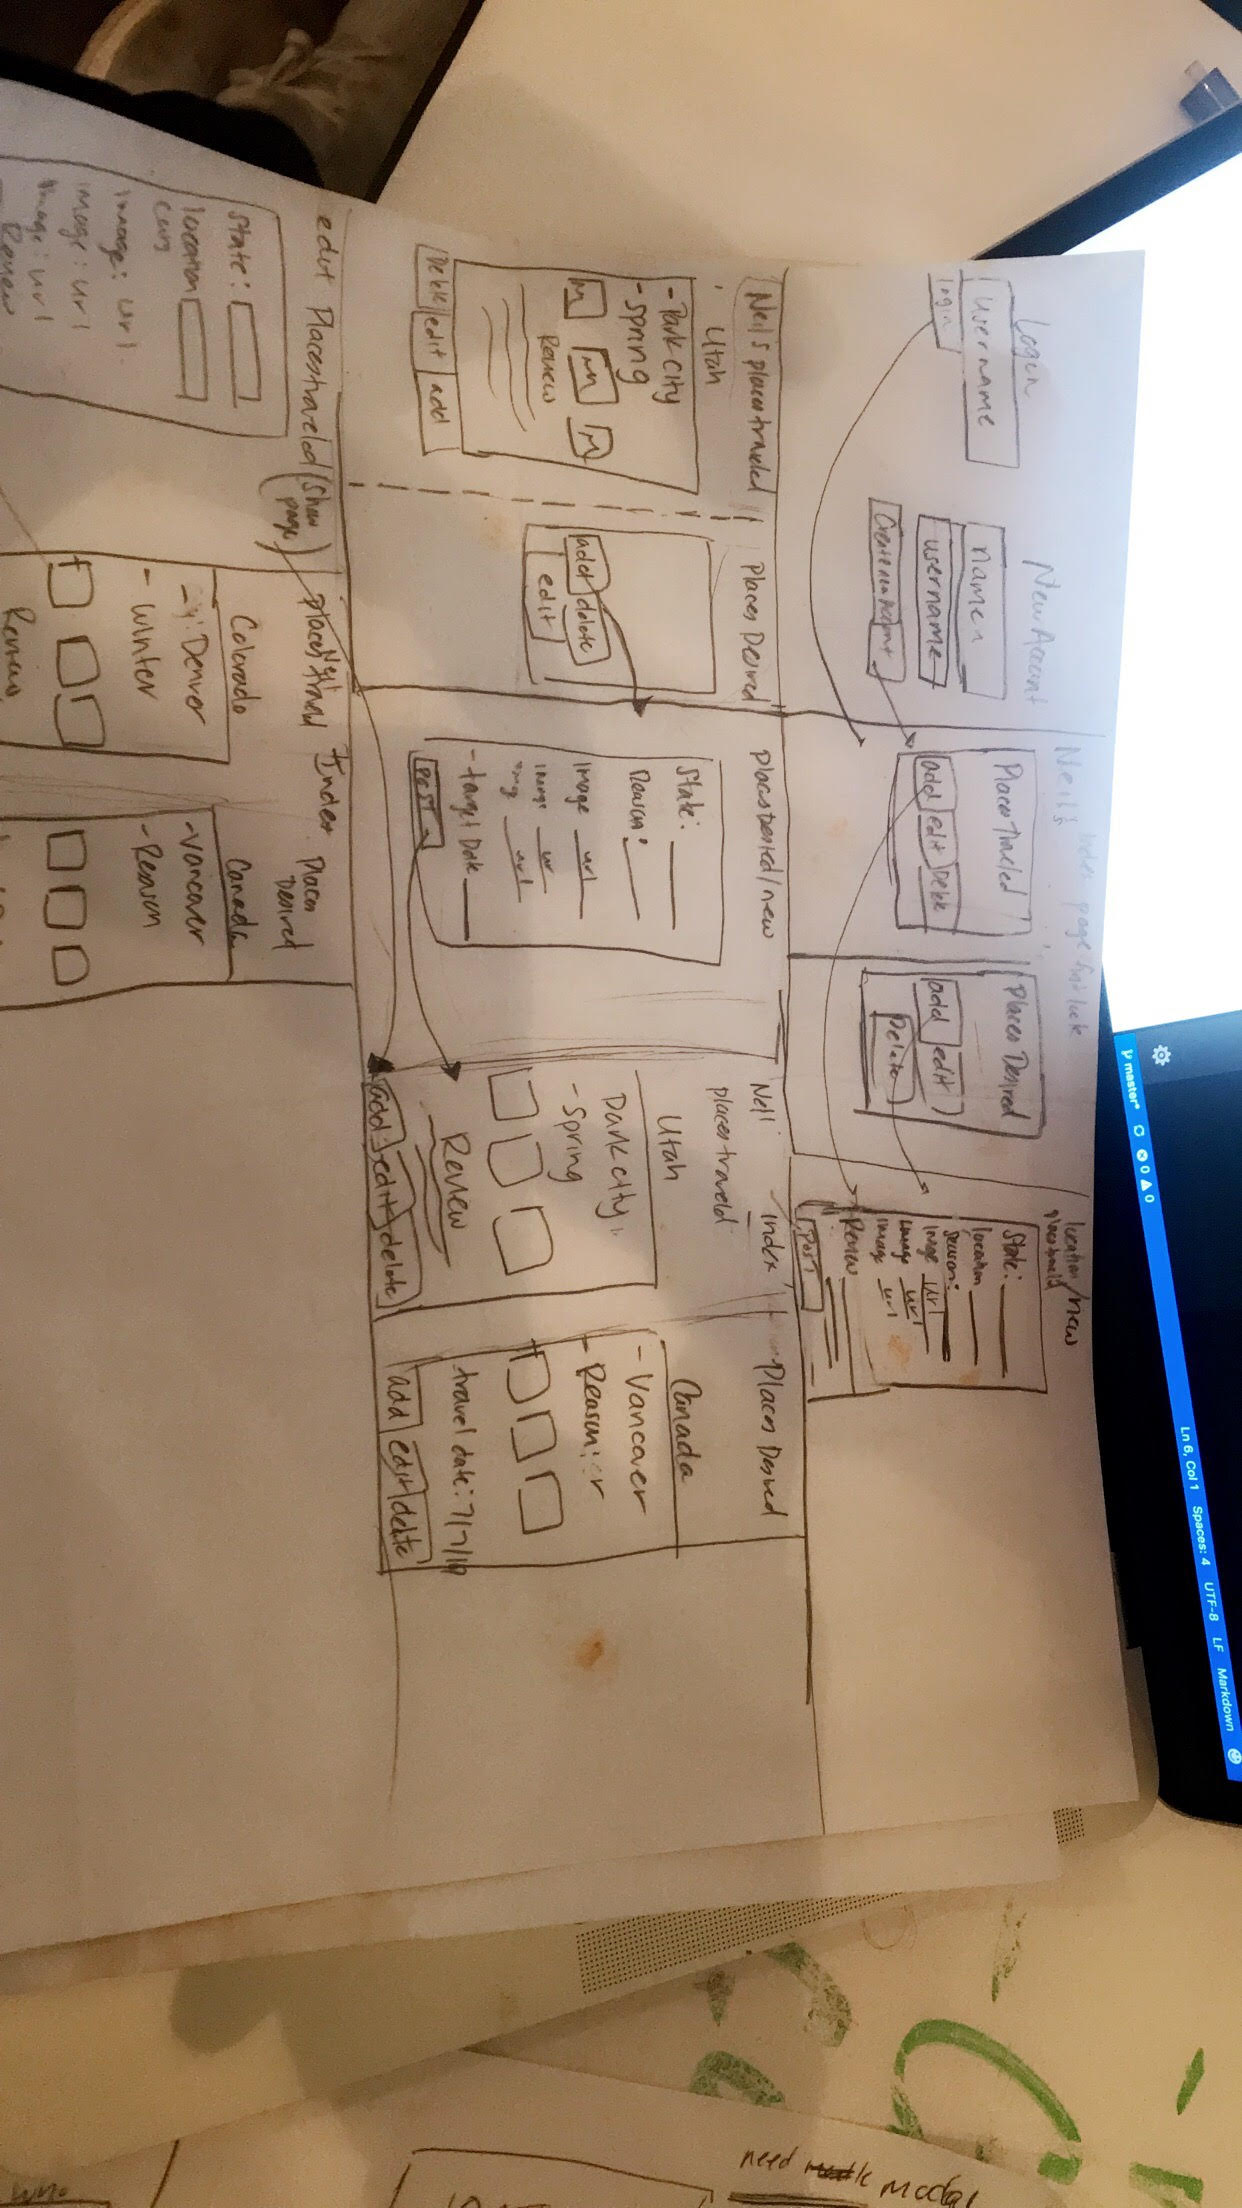 Login
username
login
New Account
name
username
Create new Account
Neil's index page first look
Places Traveled
add edit Delete
Places Desired
add edit
Delete
location/new
State:
location
season:
image url
image url
image url
Review
Post
Neil's places traveled
Utah
- Park city
- spring
Review
Delete edit add
Places Desired
add delete
edit
places Desired/new
State:
Reason:
image url
image url
img url
- target Date
POST
Neil
places traveld
index
Utah
Park city
- Spring
Review
add edit delete
Places Desired
Canada
- Vancover
- Reason:
travel date: 7/7/19
add edit delite
edit Placestraveled (show page)
State:
location
image: url
image: url
image: url
Review
Neil
Index
Colorado
Denver
- Winter
Review
Places Desired
Canada
- Vancover
- Reason
master*
0
0
Ln 6, Col 1
Spaces: 4
UTF-8
LF
Markdown
need
Modal
who